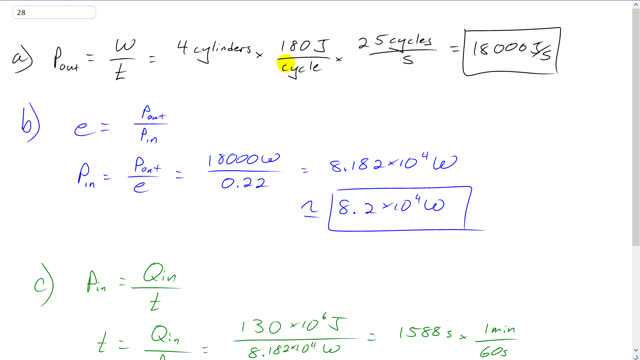 28
a) Pout = W/t = 4 cylinders × 180J/cycle × 25 cycles/s = 18000 J/s
b) e = Pout/Pin
Pin = Pout/e = 18000W/0.22 = 8.182×10⁴W
≃ 8.2×10⁴W
c) Pin = Qin/t
t = Qin/ = 130×10⁶J/8.182×10⁴W = 1588s × 1min/60s